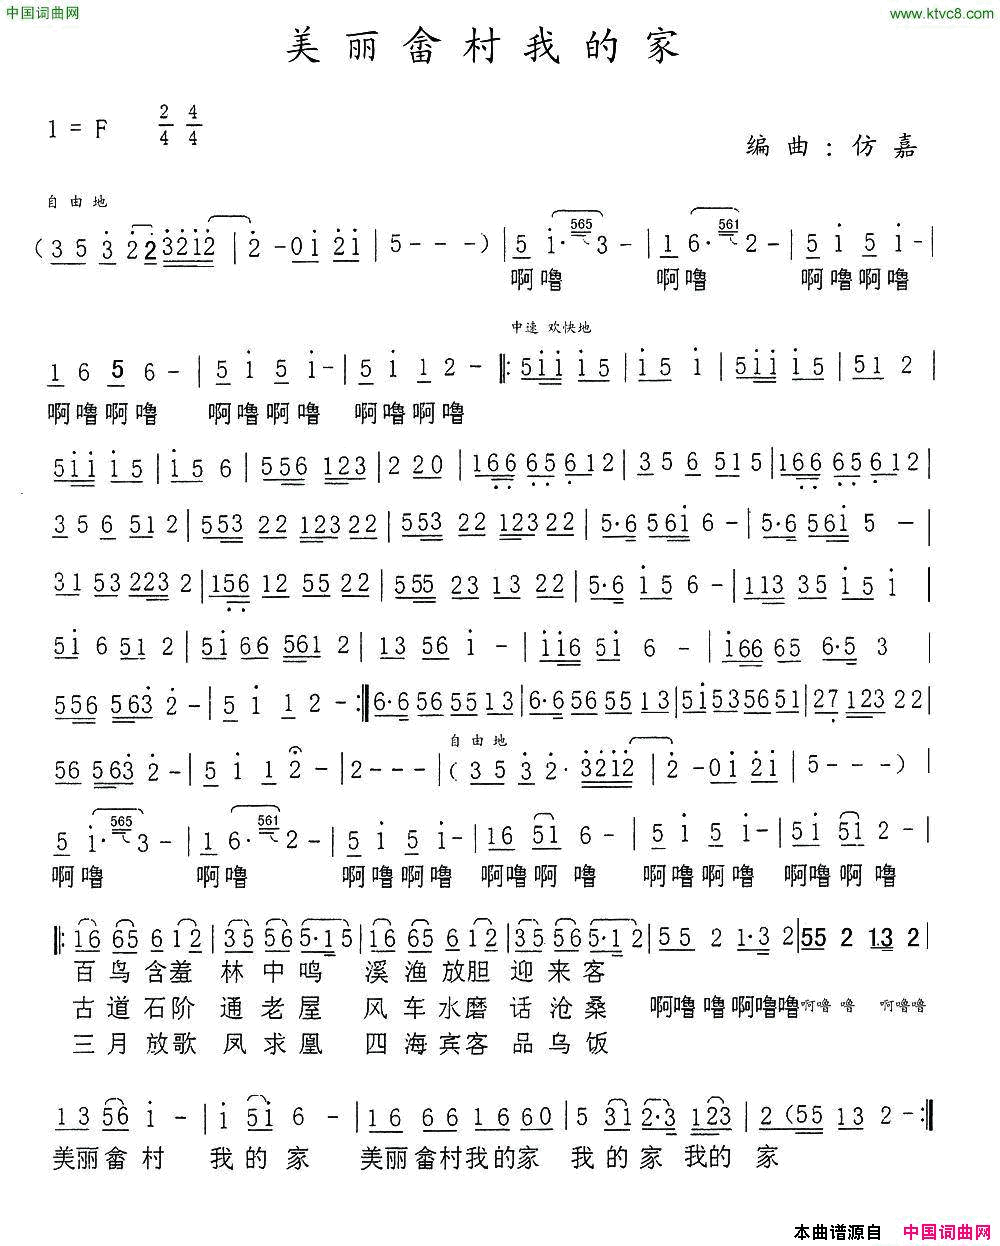 中国词曲网
www.ktvc8.com
美丽畲村我的家
1 = F 2/4 4/4
编曲：仿嘉
自由地
(3 5 3 2 2 3212 | 2 - 0 1 2 1 | 5 - - - ) | 5 1· 565 3 - | 1 6· 561 2 - | 5 1 5 1 - |
啊噜 啊噜 啊噜啊噜
中速 欢快地
1 6 5 6 - | 5 1 5 1 - | 5 1 1 2 - ‖: 511 15 | 15 1 | 511 15 | 51 2 |
啊噜啊噜 啊噜啊噜 啊噜啊噜
511 15 | 15 6 | 556 123 | 2 20 | 166 65 612 | 35 6 515 | 166 65 612 |
35 6 51 2 | 553 22 123 22 | 553 22 123 22 | 5·6 561 6 - | 5·6 561 5 - |
31 53 223 2 | 156 12 55 22 | 555 23 13 22 | 5·6 15 6 - | 113 35 15 1 |
51 6 51 2 | 51 66 561 2 | 13 56 1 - | 116 51 6 - | 166 65 6·5 3 |
556 563 2 - | 5 1 1 2 - :‖ 6·6 56 55 13 | 6·6 56 55 13 | 51 53 56 51 | 27 123 22 |
自由地
56 563 2 - | 5 1 1 2 - | 2 - - - | (3 5 3 2· 3212 | 2 - 01 21 | 5 - - - ) |
5 1· 565 3 - | 1 6· 561 2 - | 5 1 5 1 - | 16 51 6 - | 5 1 5 1 - | 51 51 2 - |
啊噜 啊噜 啊噜啊噜 啊噜啊噜 啊噜啊噜 啊噜啊噜
‖: 16 65 612 | 35 56 5·15 | 16 65 612 | 35 56 5·12 | 55 2 1·3 2 | 55 2 1.3 2 |
百鸟含羞 林中鸣 溪渔放胆 迎来客
古道石阶 通老屋 风车水磨 话沧桑 啊噜噜啊噜噜啊噜噜 啊噜噜
三月放歌 凤求凰 四海宾客 品乌饭
13 56 1 - | 1 51 6 - | 16 66 16 60 | 5 31 2·3 123 | 2 (55 13 2 - :‖
美丽畲村 我的家 美丽畲村我的家 我的家我的 家
本曲谱源自 中国词曲网